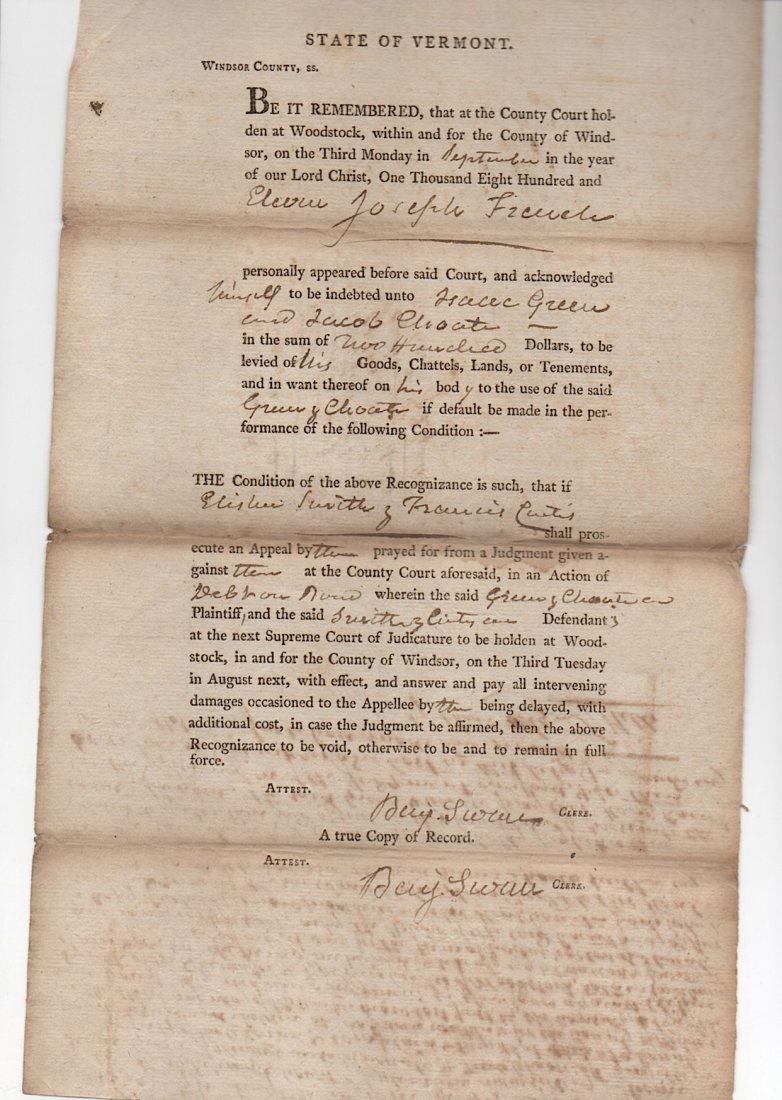 STATE OF VERMONT.
WINDSOR COUNTY, SS.
BE IT REMEMBERED, that at the County Court hol-
den at Woodstock, within and for the County of Wind-
sor, on the Third Monday in September in the year
of our Lord Christ, One Thousand Eight Hundred and
Eleven Joseph French
personally appeared before said Court, and acknowledged
himself to be indebted unto Isaac Green
and Jacob Choate —
in the sum of Two Hundred Dollars, to be
levied of his Goods, Chattels, Lands, or Tenements,
and in want thereof on his body to the use of the said
Green & Choate if default be made in the per-
formance of the following Condition :—
THE Condition of the above Recognizance is such, that if
Elisha Smith & Francis Curtis
shall pros-
ecute an Appeal by them prayed for from a Judgment given a-
gainst them at the County Court aforesaid, in an Action of
Debt on Bond wherein the said Green & Choate are
Plaintiff, and the said Smith & Curtis are Defendants
at the next Supreme Court of Judicature to be holden at Wood-
stock, in and for the County of Windsor, on the Third Tuesday
in August next, with effect, and answer and pay all intervening
damages occasioned to the Appellee by the being delayed, with
additional cost, in case the Judgment be affirmed, then the above
Recognizance to be void, otherwise to be and to remain in full
force.
ATTEST.
Benj. Swan CLERK.
A true Copy of Record.
ATTEST.
Benj. Swan CLERK.